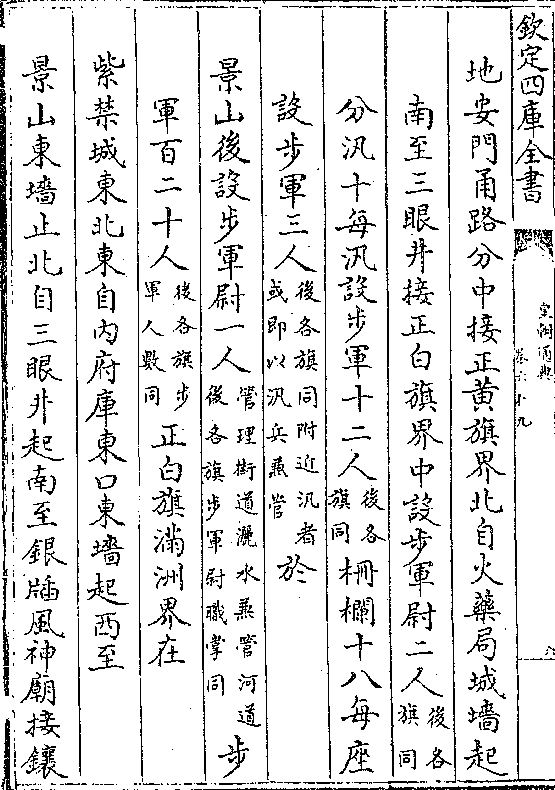 欽定四庫全書
皇朝通典
卷六十九
地安門甬路分中接正黃旗界北自火藥局城墻起
南至三眼井接正白旗界中設步軍尉二人後各旗同
分汛十每汛設步軍十二人後各旗同柵欄十八每座
設步軍三人後各旗同附近汛者或即以汛兵兼管於
景山後設步軍尉一人管理街道灑水兼管河道後各旗步軍尉職掌同步
軍百二十人後各旗步軍人數同正白旗滿洲界在
紫禁城東北東自内府庫東口東墻起西至
景山東墻止北自三眼井起南至銀牐風神廟接鑲